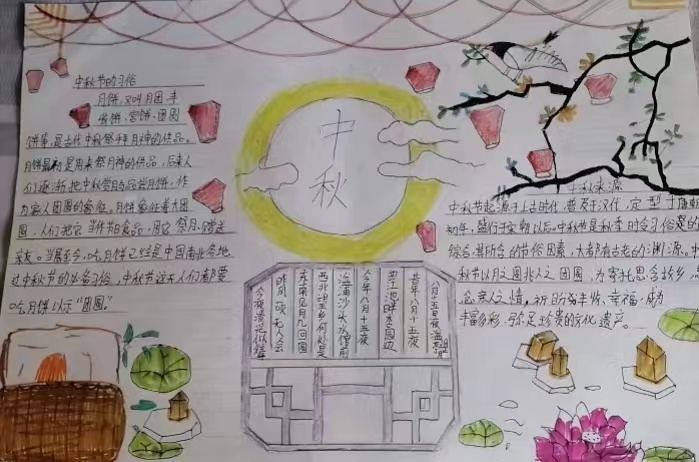 中秋节的习俗
月饼，又叫月团、丰
收饼、宫饼、团圆
饼等，是古代中秋祭拜月神的供品。
月饼最初是用来祭月神的供品，后来人
们逐渐把中秋赏月与品尝月饼，作
为家人团圆的象征。月饼象征着大团
圆，人们把它当作节日食品，用它祭月、赠送
亲友。发展至今，吃月饼已经是中国南北各地
过中秋节的必备习俗，中秋节这天人们都要
吃月饼以示“团圆”。
中秋
八月十五日夜湓亭望月
昔年八月十五夜
曲江池畔杏园边
今年八月十五夜
湓浦沙头水馆前
西北望乡何处是
东南见月几回圆
昨风一吹无人会
今夜清光似往年
中秋来源
中秋节起源于上古时代，普及于汉代，定型于唐朝
初年，盛行于宋朝以后。中秋节是秋季时令习俗的
综合，其所含的节俗因素，大都有古老的渊源。中
秋节以月之圆兆人之团圆，为寄托思念故乡，
念亲人之情，祈盼丰收、幸福，成
丰富多彩、弥足珍贵的文化遗产。